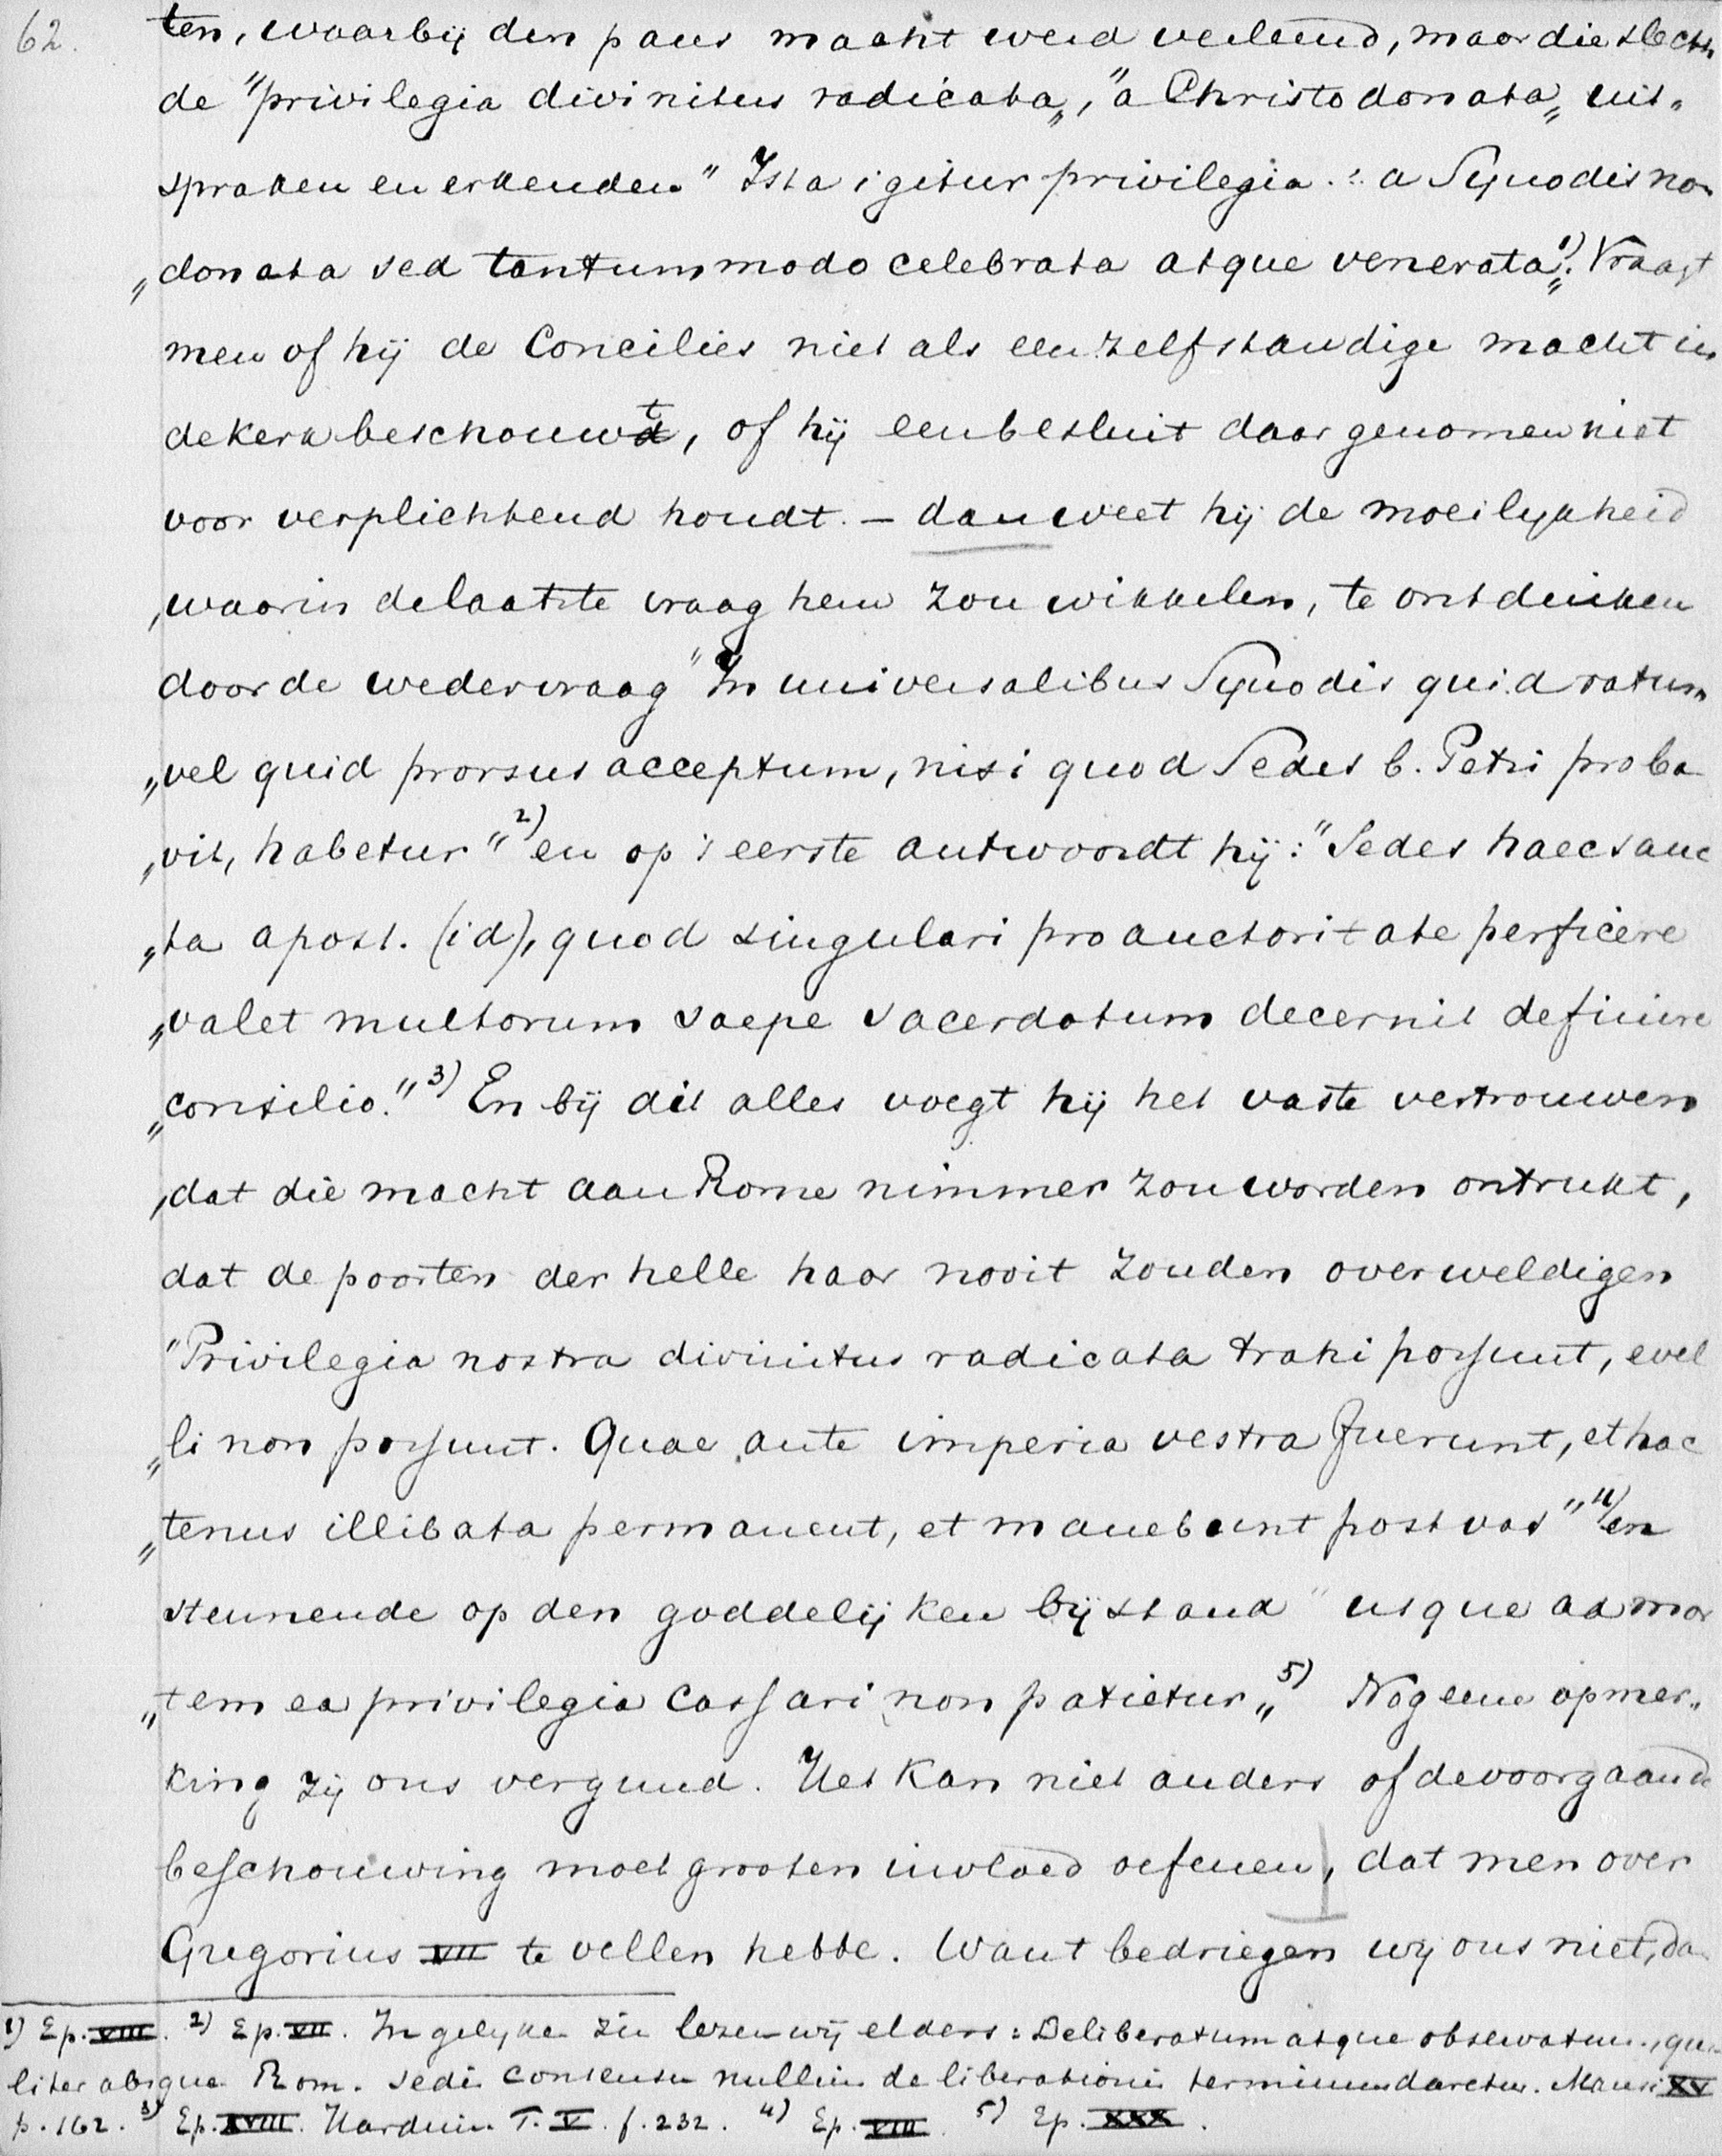 62.
ten, waarbij den paus macht werd verleend, maar die slechts
de "privilegia divinitus radicata„, "a Christo donata„ uit„
spraken en erkenden. "Ista igitur privilegia .:. a Synodis non
„donata sed tantummodo celebrata atque venerata„ 1). Vraagt
men of hij de Concilies niet als een zelfstandige macht in
de kerk beschouwt, of hij een besluit daar genomen niet
voor verplichtend houdt. — dan weet hij de moeilykheid
,waarin de laatste vraag hem zou wikkelen, te ontduiken
door de wedervraag "In universalibus Synodis quid ratum
„vel quid prorsus acceptum, nisi quod Sedes b. Petri proba
„vit, habetur" 2) en op 't eerste antwoordt hij: "Sedes haec sanc
„ta apost. (id), quod singulari pro auctoritate perficere
„valet multorum saepe sacerdotum decernit definire
„consilio." 3) En bij dit alles voegt hij het vaste vertrouwen
,dat die macht aan Rome nimmer zou worden ontrukt,
dat de poorten der helle haar nooit zouden overweldigen
"Privilegia nostra divinitus radicata trahi possunt, evel
„li non possunt. Quae ante imperia vestra fuerunt, et hac
„tenus illibata permanent, et manebunt post vos" 4) en
steunende op den goddelijken bijstand "usque ad mor
„tem ea privilegia cassari non patietur„ 5) Nog eene opmer„
king zij ons vergund. Het kan niet anders of de voorgaande
beschouwing moet grooten invloed oefenen, dat men over
Gregorius VII te vellen hebbe. Want bedriegen wij ons niet, dan
1) Ep. VIII. 2) Ep. VII. In gelyken zin lezen wij elders: Deliberatum atque observatum, qua
liter absque Rom. sedis consensu nullius deliberationis terminus daretur. Mansi XV
p. 162. 3) Ep. XVIII. Harduin T. V. f. 232. 4) Ep. VIII. 5) Ep. XXX.